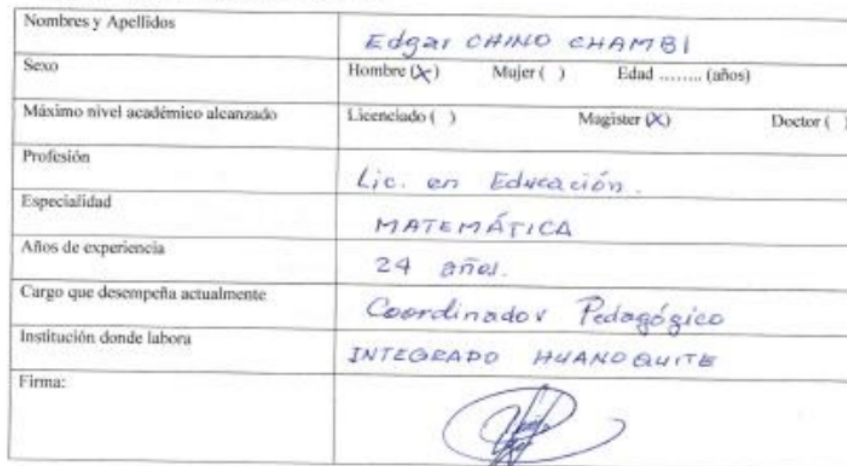 Nombres y Apellidos
Edgar CHINO CHAMBI
Sexo
Hombre (X) Mujer ( ) Edad ........ (años)
Máximo nivel académico alcanzado
Licenciado ( ) Magister (X) Doctor ( )
Profesión
Lic. en Educación.
Especialidad
MATEMÁTICA
Años de experiencia
24 años.
Cargo que desempeña actualmente
Coordinador Pedagógico
Institución donde labora
INTEGRADO HUANOQUITE
Firma: